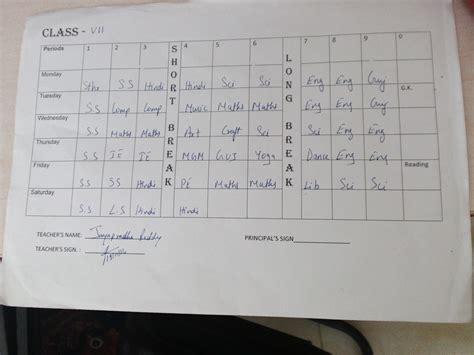 CLASS - VII
Periods 1 2 3 SHORT BREAK 4 5 6 LONG BREAK 7 8 9 0
Monday
SS Hindi Hindi Sci Sci Eng Eng Guj G.K.
Tuesday
SS Comp Comp Music Maths Maths Eng Eng
Wednesday
SS Maths Maths Art Craft Sci Sci Eng Eng
Thursday
SS IE IE MGM GUJ Yoga Dance Eng Eng Reading
Friday
S.S SS Hindi PE Maths Maths Lib Sci Sci
Saturday
S.S L.S Hindi Hindi
TEACHER'S NAME: Reddy PRINCIPAL'S SIGN
TEACHER'S SIGN. :